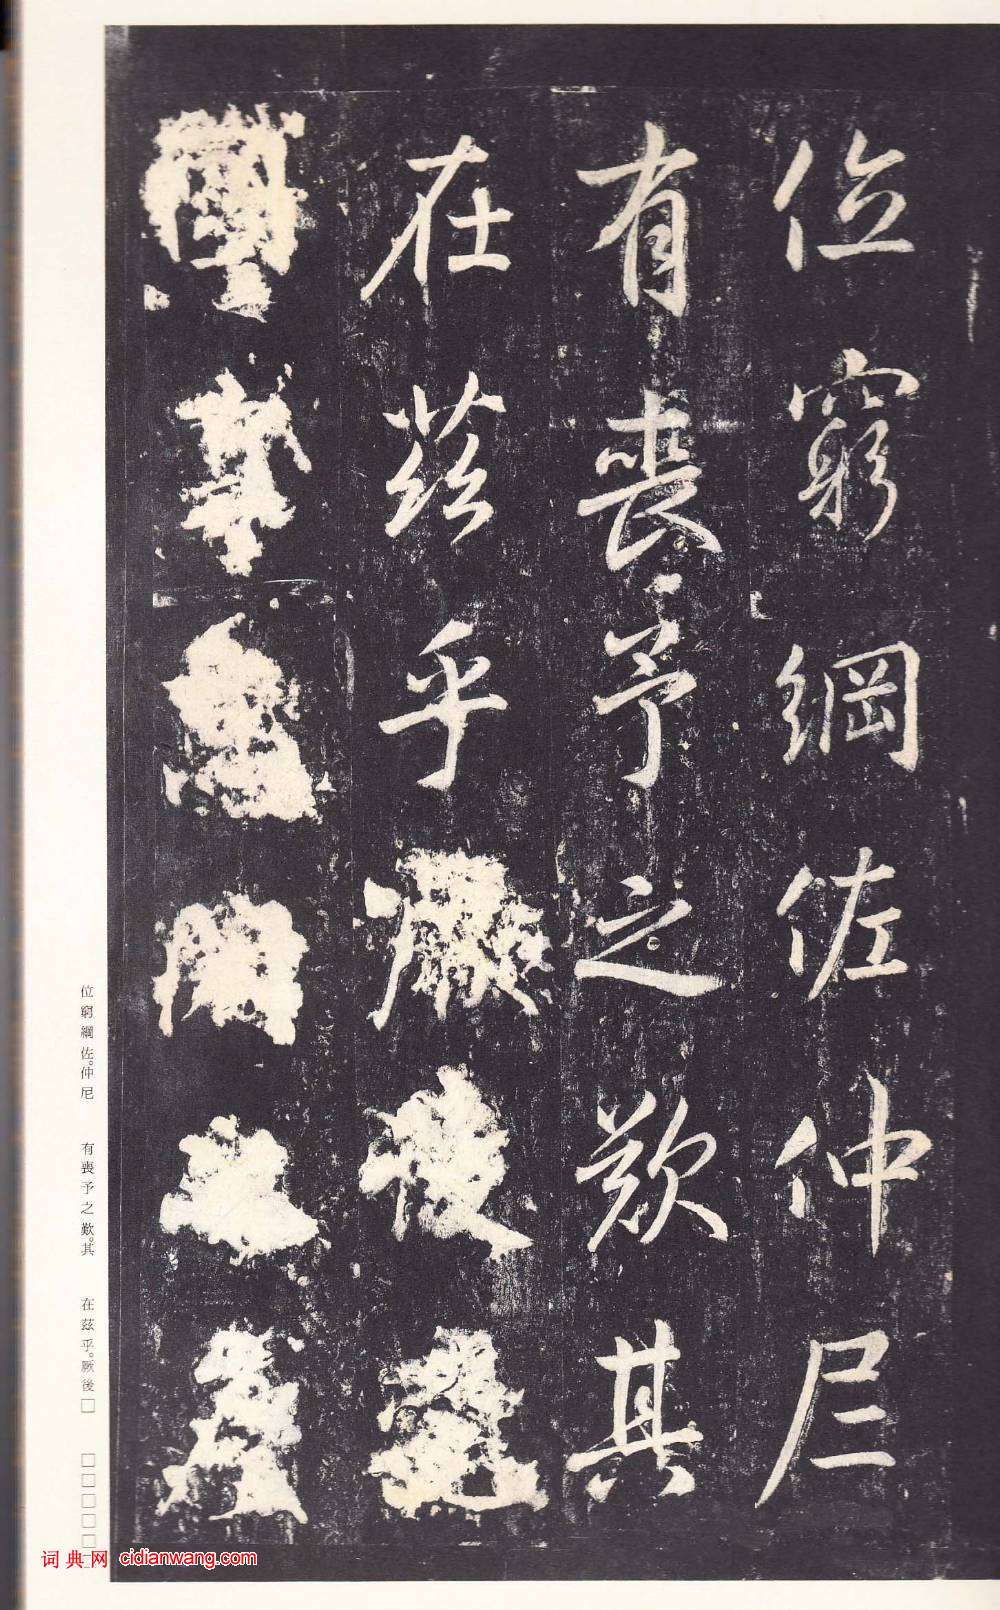 位窮綱佐仲尼
有喪予之歎其
在茲乎厥後
位窮綱佐。仲尼
有喪予之歎。其
在茲乎。厥後□
□□□□□□
词典网 cidianwang.com